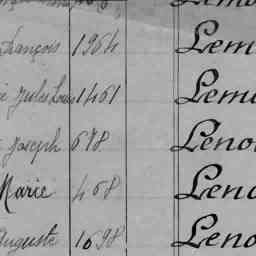 François 1964 Lem
Jules Louis 1461 Lem
Joseph 678 Leno
Marie 468 Leno
Auguste 1698 Leno